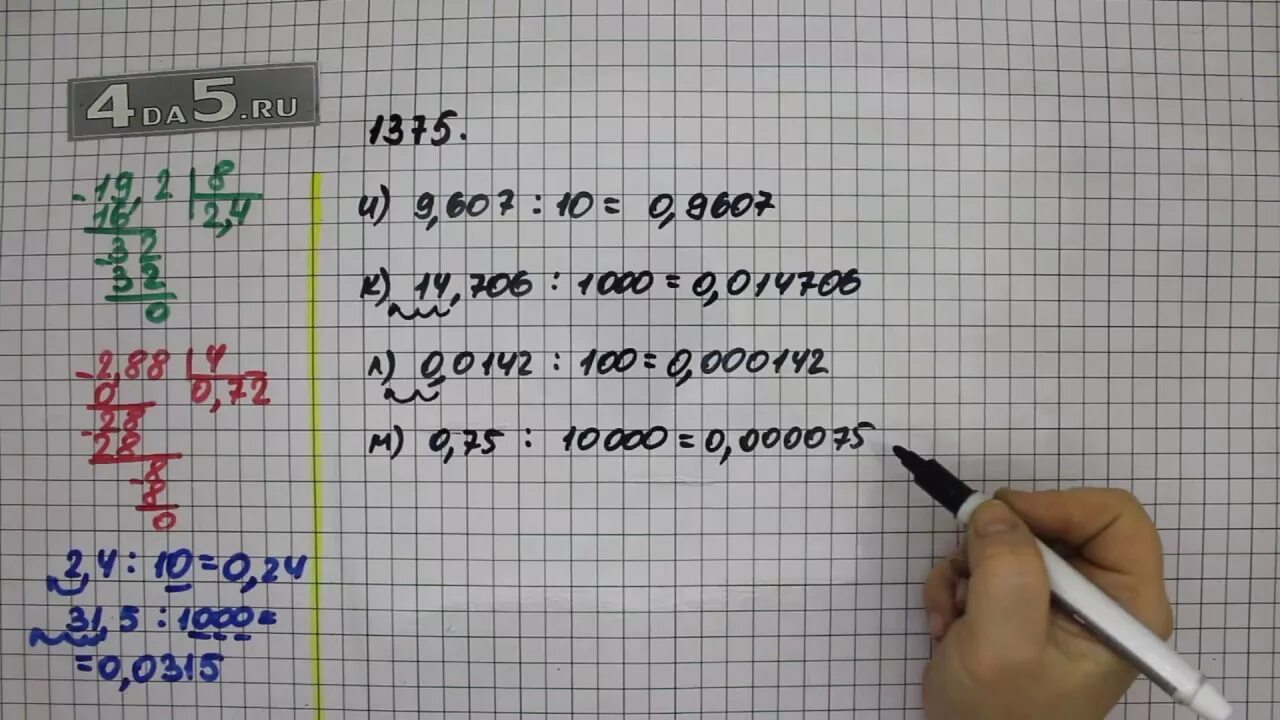 4DA5.RU
1375.
и) 9,607 : 10 = 0,9607
к) 14,706 : 1000 = 0,014706
л) 0,0142 : 100 = 0,000142
м) 0,75 : 10000 = 0,000075
- 19,2 | 8
16 2,4
- 32
32
0
- 2,88 | 4
0 0,72
- 28
28
- 8
8
0
2,4 : 10 = 0,24
31,5 : 1000 =
= 0,0315